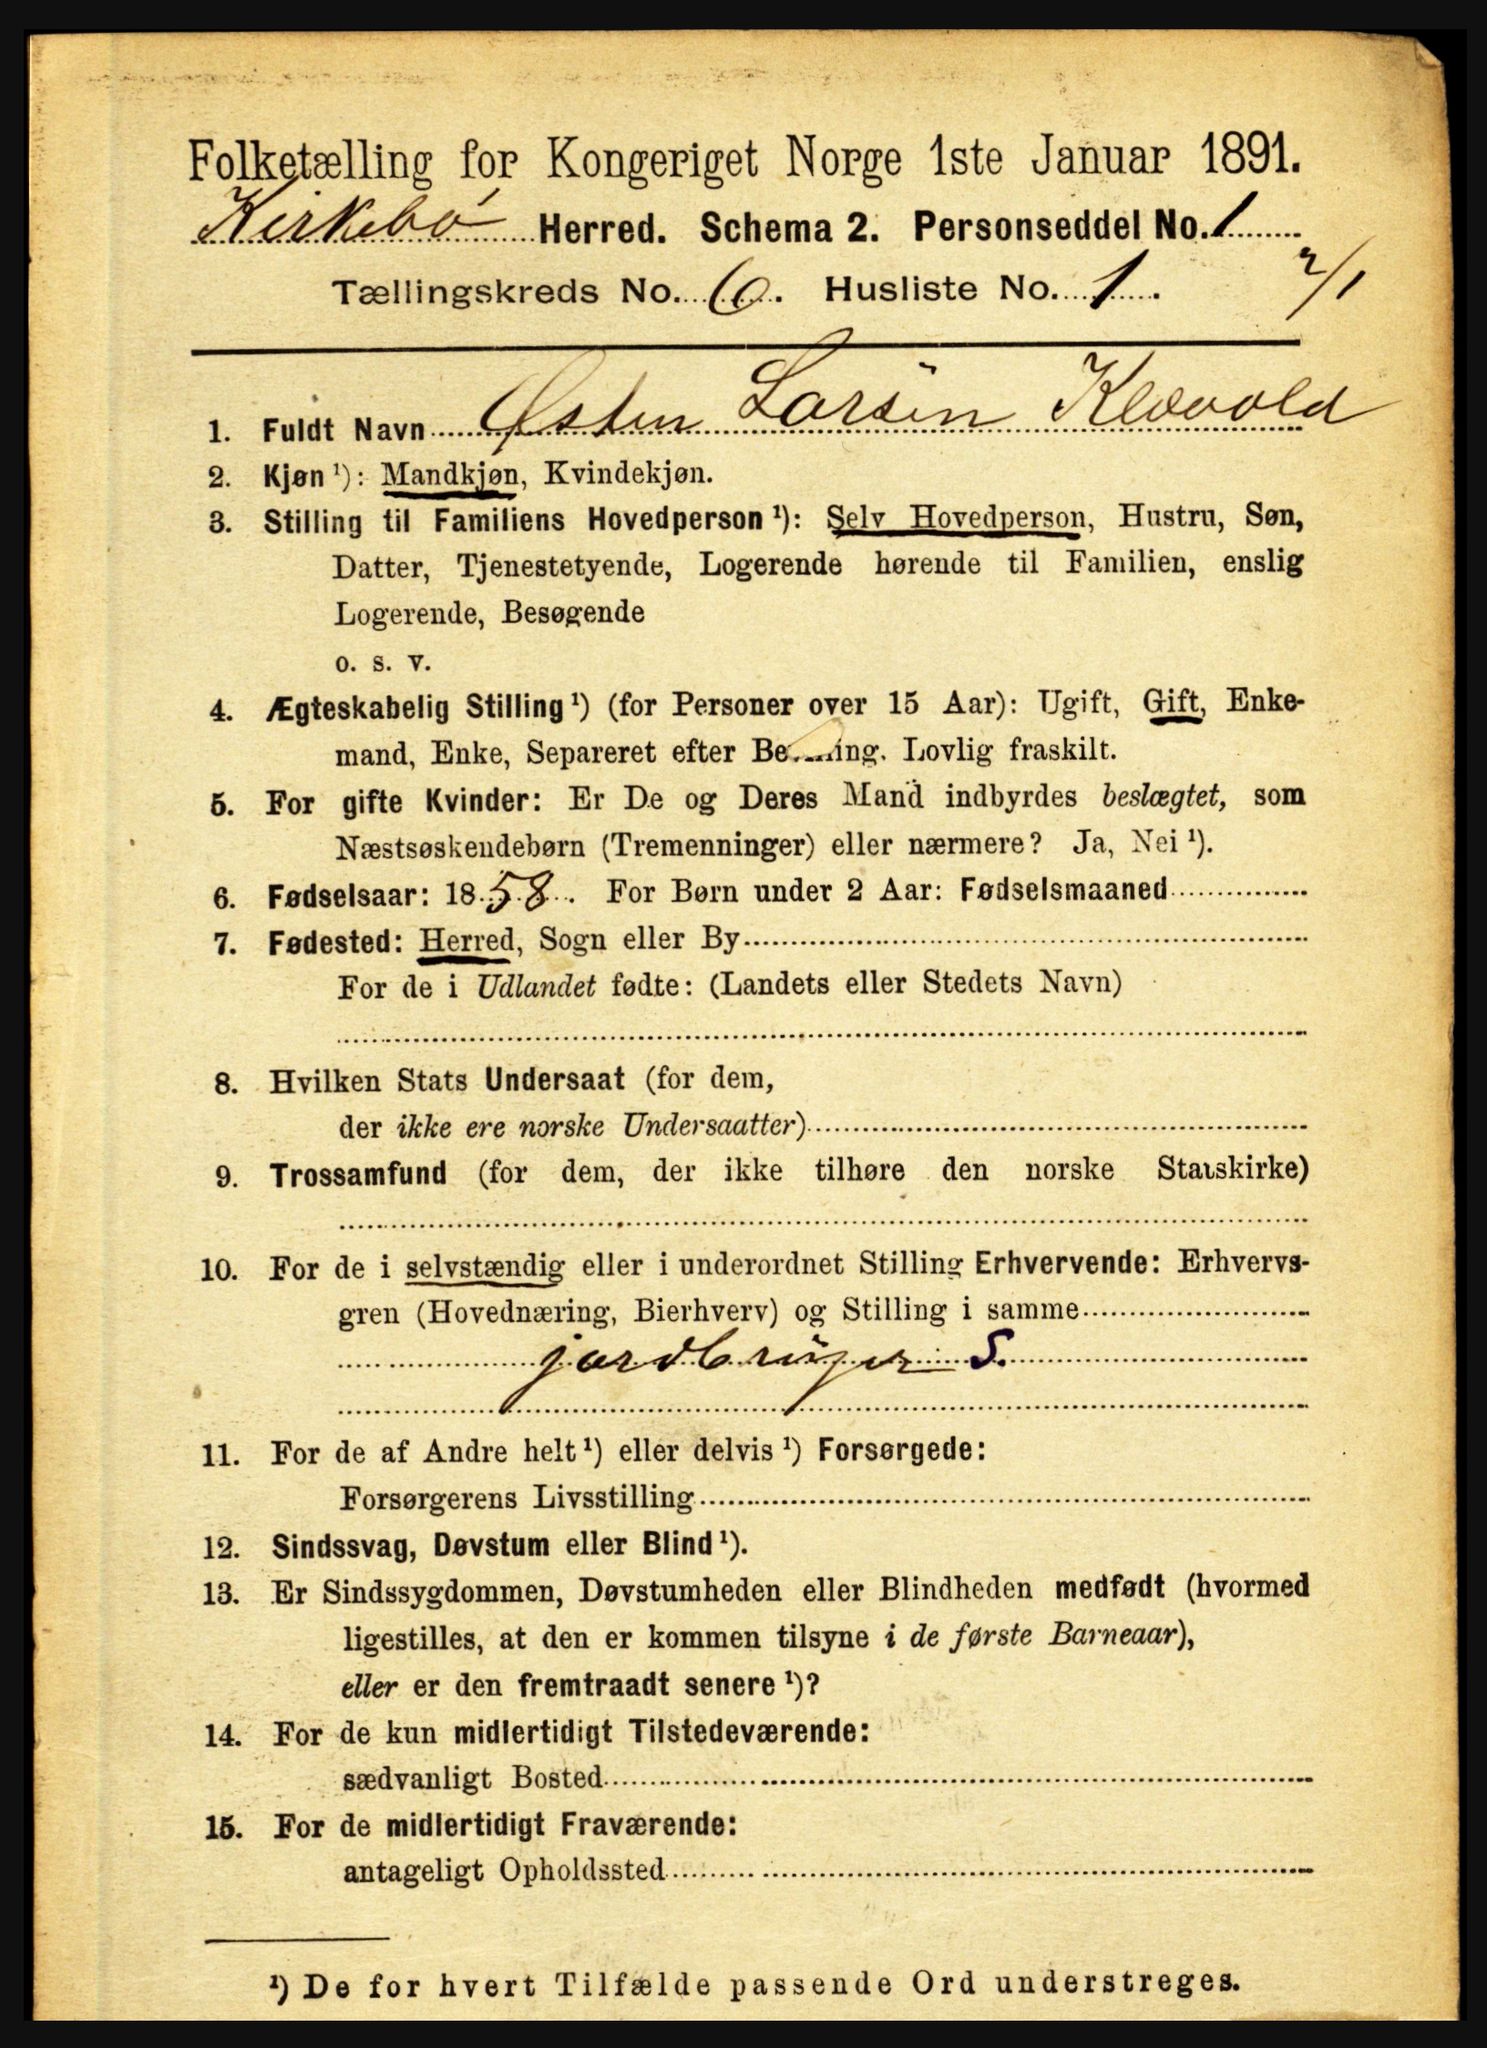 Folketælling for Kongeriget Norge 1ste Januar 1891.
Kirkebø Herred. Schema 2. Personseddel No. 1
Tællingskreds No. 6. Husliste No. 1. 2/1
1. Fuldt Navn Østen Larsen Klævold
2. Kjøn ¹): Mandkjøn, Kvindekjøn.
3. Stilling til Familiens Hovedperson ¹): Selv Hovedperson, Hustru, Søn,
Datter, Tjenestetyende, Logerende hørende til Familien, enslig
Logerende, Besøgende
o. s. v.
4. Ægteskabelig Stilling ¹) (for Personer over 15 Aar): Ugift, Gift, Enke-
mand, Enke, Separeret efter Be...ing. Lovlig fraskilt.
5. For gifte Kvinder: Er De og Deres Mand indbyrdes beslægtet, som
Næstsøskendebørn (Tremenninger) eller nærmere? Ja, Nei ¹).
6. Fødselsaar: 1858. For Børn under 2 Aar: Fødselsmaaned
7. Fødested: Herred, Sogn eller By
For de i Udlandet fødte: (Landets eller Stedets Navn)
8. Hvilken Stats Undersaat (for dem,
der ikke ere norske Undersaatter)
9. Trossamfund (for dem, der ikke tilhøre den norske Statskirke)
10. For de i selvstændig eller i underordnet Stilling Erhvervende: Erhvervs-
gren (Hovednæring, Bierhverv) og Stilling i samme
jordbruger S.
11. For de af Andre helt ¹) eller delvis ¹) Forsørgede:
Forsørgerens Livsstilling
12. Sindssvag, Døvstum eller Blind ¹).
13. Er Sindssygdommen, Døvstumheden eller Blindheden medfødt (hvormed
ligestilles, at den er kommen tilsyne i de første Barneaar),
eller er den fremtraadt senere ¹)?
14. For de kun midlertidigt Tilstedeværende:
sædvanligt Bosted
15. For de midlertidigt Fraværende:
antageligt Opholdssted
¹) De for hvert Tilfælde passende Ord understreges.